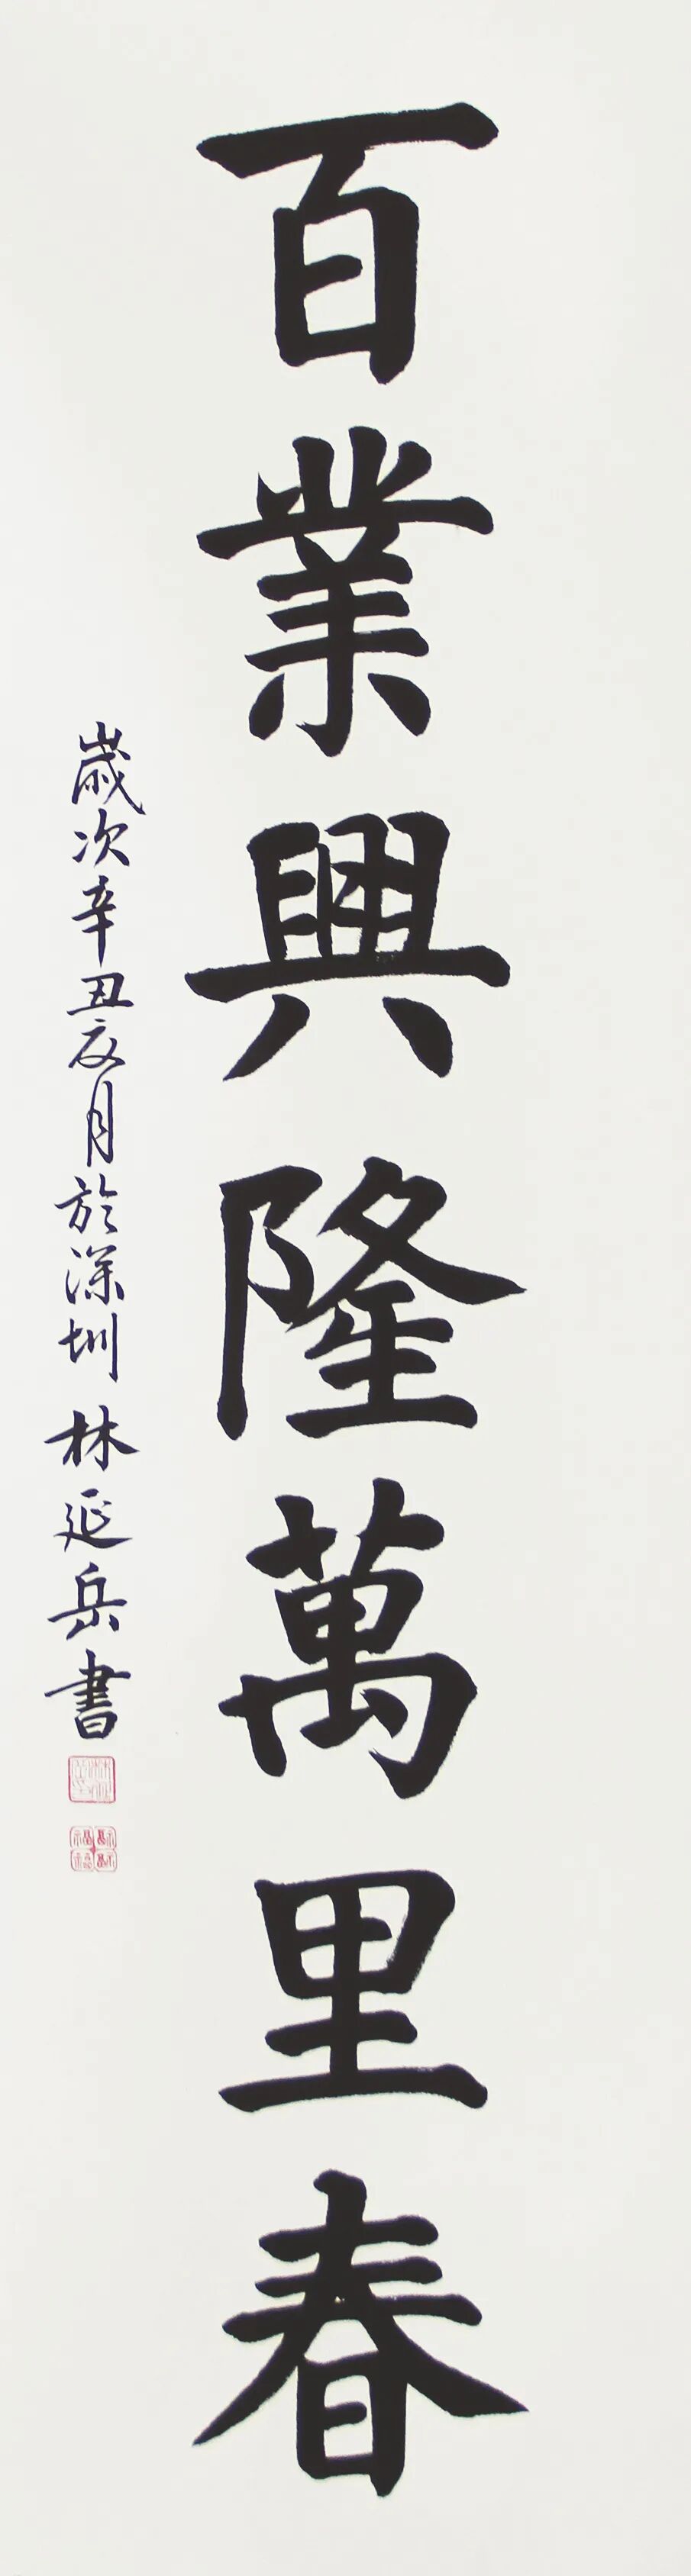 百業興隆萬里春
歲次辛丑亥月於深圳 林延岳書